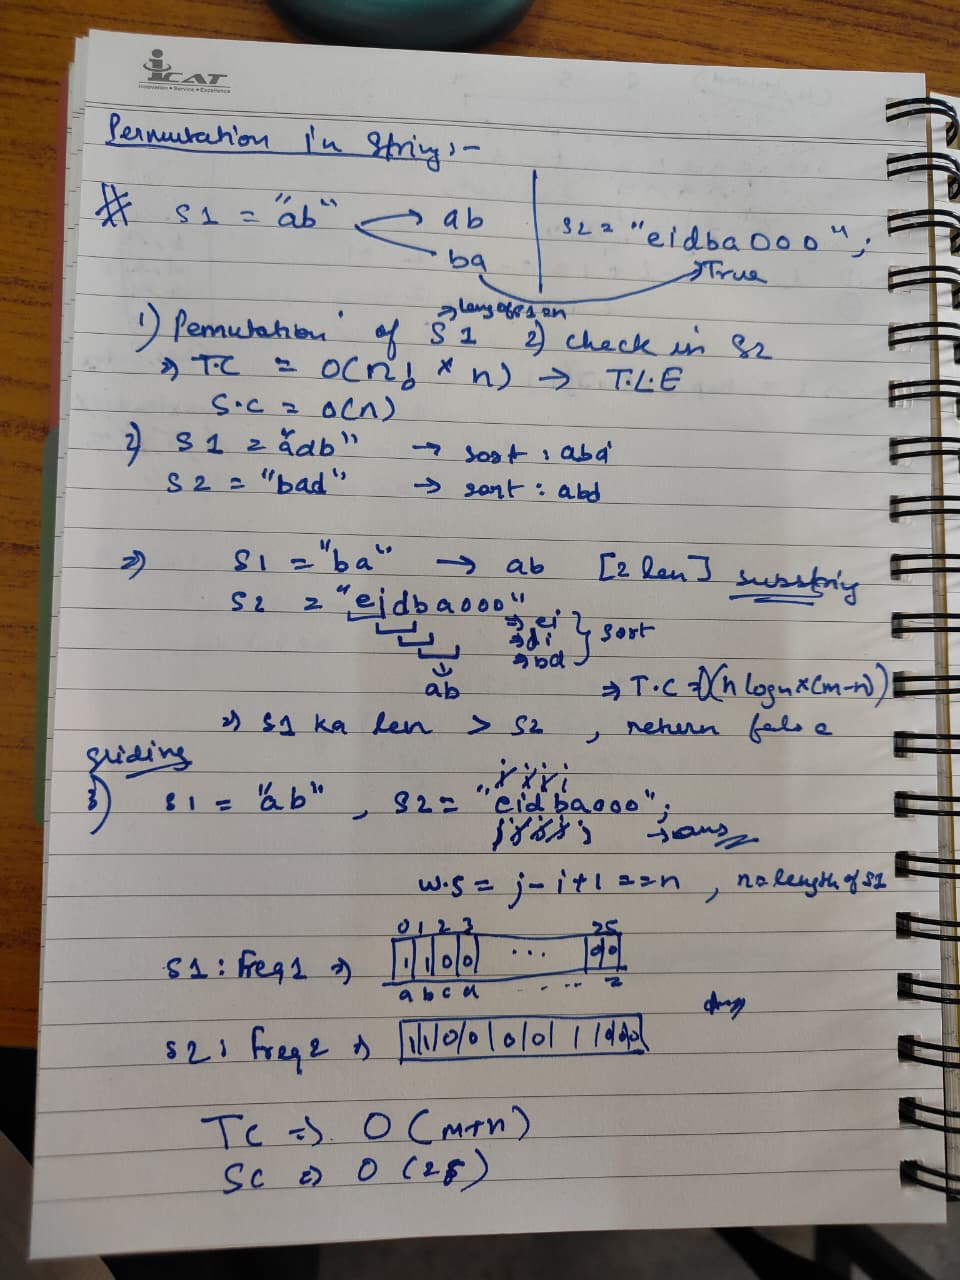 iCAT
Innovation • Service • Excellence
Permutation in String :-
# S1 = "ab" → ab
ba
S2 = "eidbaooo";
True
1) Permutation of S1 2) check in S2
⇒ T.C = O(n! * n) → T.L.E
S.C = O(n)
2) S1 = "adb" → sort : abd
S2 = "bad" → sort : abd
⇒ S1 = "ba" → ab [2 len] substring
S2 = "eidbaooo"
⇒ ei
⇒ di
⇒ bd } sort
ab
⇒ T.C = O(n logn × (m-n))
⇒ S1 ka len > S2 , return false
sliding
3) S1 = "ab" , S2 = "eidbaooo";
→ ans
w.s = j - i + 1 == n , n = length of S1
0 1 2 3 25
S1 : freq1 ⇒ 1 1 0 0 ... 0 0
a b c d ..... z
S2 : freq2 ⇒
TC ⇒ O(m+n)
SC ⇒